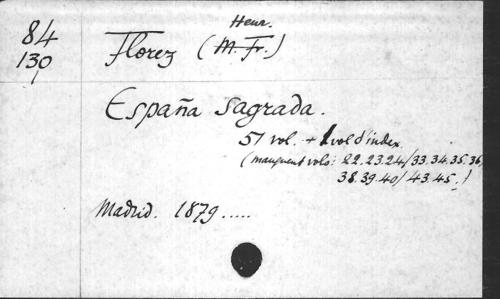 84
130
Henr.
Florez (M. Fr.)
España Sagrada.
51 vol. + 1 vol d'index.
(manquent vols: 22.23.24/33.34.35.36,
38.39.40/43.45.)
Madrid. 1879.....